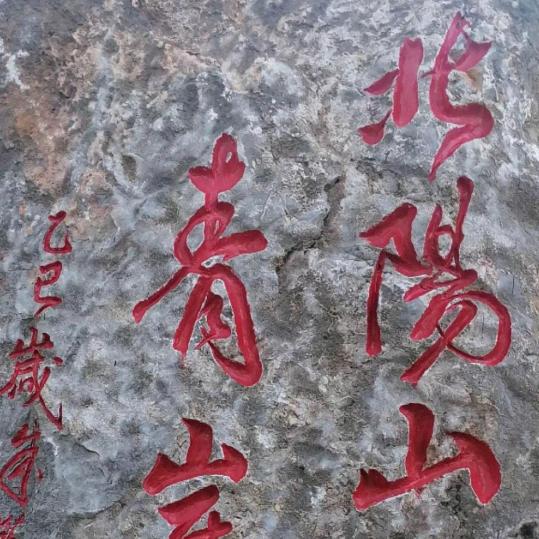 北陽山
青
乙巳歲